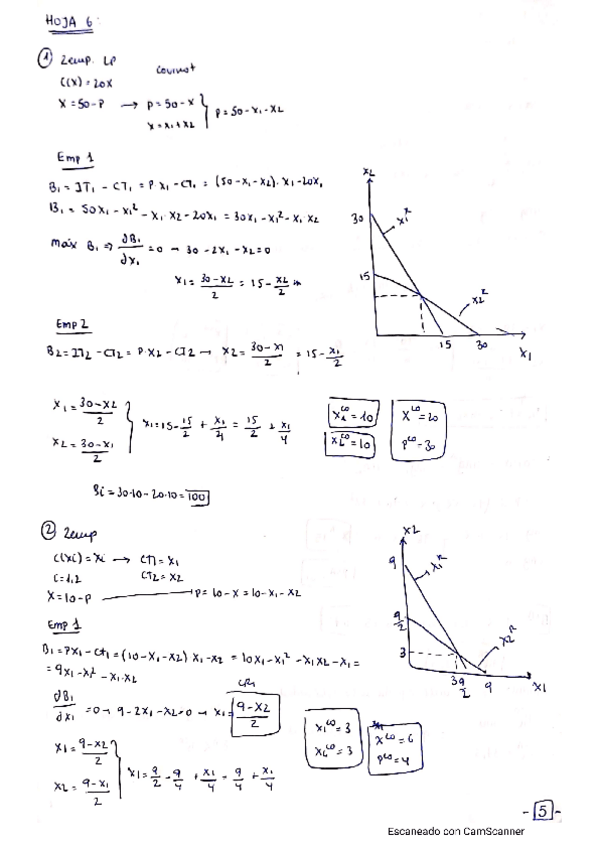 HOJA 6:
① 2emp. LP Cournot
C(X) = 20X
X = 50 - P → P = 50 - X
X = X1 + X2
P = 50 - X1 - X2
Emp 1
B1 = IT1 - CT1 = P · X1 - CT1 = (50 - X1 - X2) · X1 - 20X1
B1 = 50X1 - X1² - X1 X2 - 20X1 = 30X1 - X1² - X1 X2
máx B1 ⇒ ∂B1/∂X1 = 0 → 30 - 2X1 - X2 = 0
X1 = 30 - X2/2 = 15 - X2/2
X2
30
X1^R
15
X2^R
15 30 X1
Emp 2
B2 = IT2 - CT2 = P · X2 - CT2 → X2 = 30 - X1/2 = 15 - X1/2
X1 = 30 - X2/2
X2 = 30 - X1/2
X1 = 15 - 15/2 + X1/4 = 15/2 + X1/4
X1^CO = 10
X2^CO = 10
X^CO = 20
P^CO = 30
Bi = 30·10 - 20·10 = 100
② 2emp
C(Xi) = Xi → CT1 = X1
i = 1,2 CT2 = X2
X = 10 - P → P = 10 - X = 10 - X1 - X2
Emp 1
B1 = PX1 - CT1 = (10 - X1 - X2) X1 - X2 = 10X1 - X1² - X1X2 - X1 =
= 9X1 - X1² - X1X2
∂B1/∂X1 = 0 → 9 - 2X1 - X2 = 0 → X1 = 9 - X2/2
CR1
X1 = 9 - X2/2
X2 = 9 - X1/2
X1 = 9/2 - 9/4 + X1/4 = 9/4 + X1/4
X2
9
X1^R
9/2
X2^R
3
3 9/2 9 X1
X1^CO = 3
X2^CO = 3
X^CO = 6
P^CO = 4
- 5 -
Escaneado con CamScanner